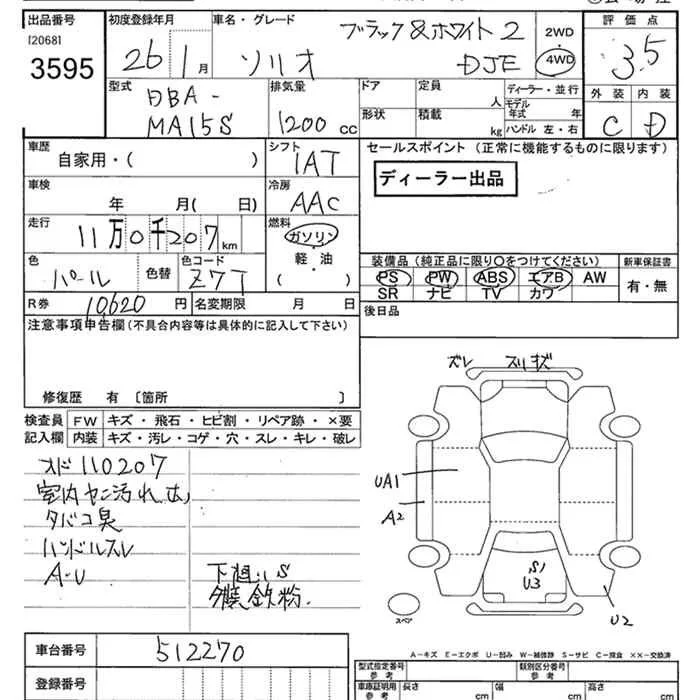 出品番号 初度登録年月 車名・グレード ブラック&ホワイト2 2WD 評価点
[2068]
3595 26 1月 ソリオ DJE 4WD 3.5
型式 DBA- 排気量 ドア 定員 人 ディーラー・並行 外装 内装
MA15S 1200 cc 形状 積載 kg モデル年式 年 C D
ハンドル 左・右
車歴 自家用・( ) シフト IAT セールスポイント (正常に機能するものに限ります)
車検 年 月( 日) 冷房 AAC ディーラー出品
走行 11万0千207km 燃料 ガソリン
軽・油
( )
色 パール 色替 色コード Z7T 装備品(純正品に限り〇をつけてください) 新車保証書
PS PW ABS エアB AW 有・無
SR ナビ TV カワ
R券 10620円 名変期限 月 日 後日品
注意事項申告欄(不具合内容等は具体的に記入して下さい)
修復歴 有 〔箇所 〕
検査員 FW キズ・飛石・ヒビ割・リペア跡・×要
記入欄 内装 キズ・汚レ・コゲ・穴・スレ・キレ・破レ
ズレ スリキズ
オド110207
室内ヤニ汚れ
タバコ臭
ハンドルスレ
A-U
下廻りS
外装鉄粉.
UA1
A2
S1
U3
U2
スペア
車台番号 512270
登録番号
A-キズ E-エクボ U-凹み W-補修跡 S-サビ C-腐食 ××-交換済
型式指定番号 参考 類別区分番号 参考
車庫証明用 参考 長さ cm 幅 cm 高さ cm